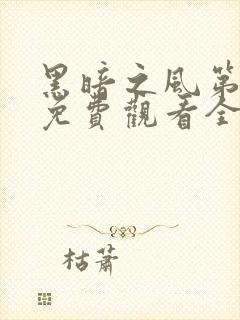 黑暗之風第
免費觀看全
枯蕭